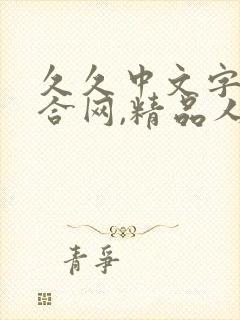 久久中文字
合网,精品人
青争